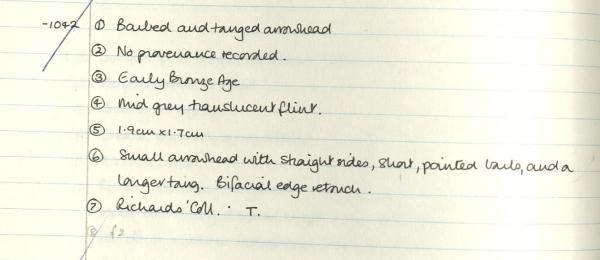 -1042 ① Barbed and tanged arrowhead
② No provenance recorded.
③ Early Bronze Age
④ Mid grey translucent flint.
⑤ 1.9cm x 1.7cm
⑥ Small arrowhead with straight sides, short, pointed barbs, and a
longer tang. Bifacial edge retouch.
⑦ Richards' Coll. T.
⑧ f2